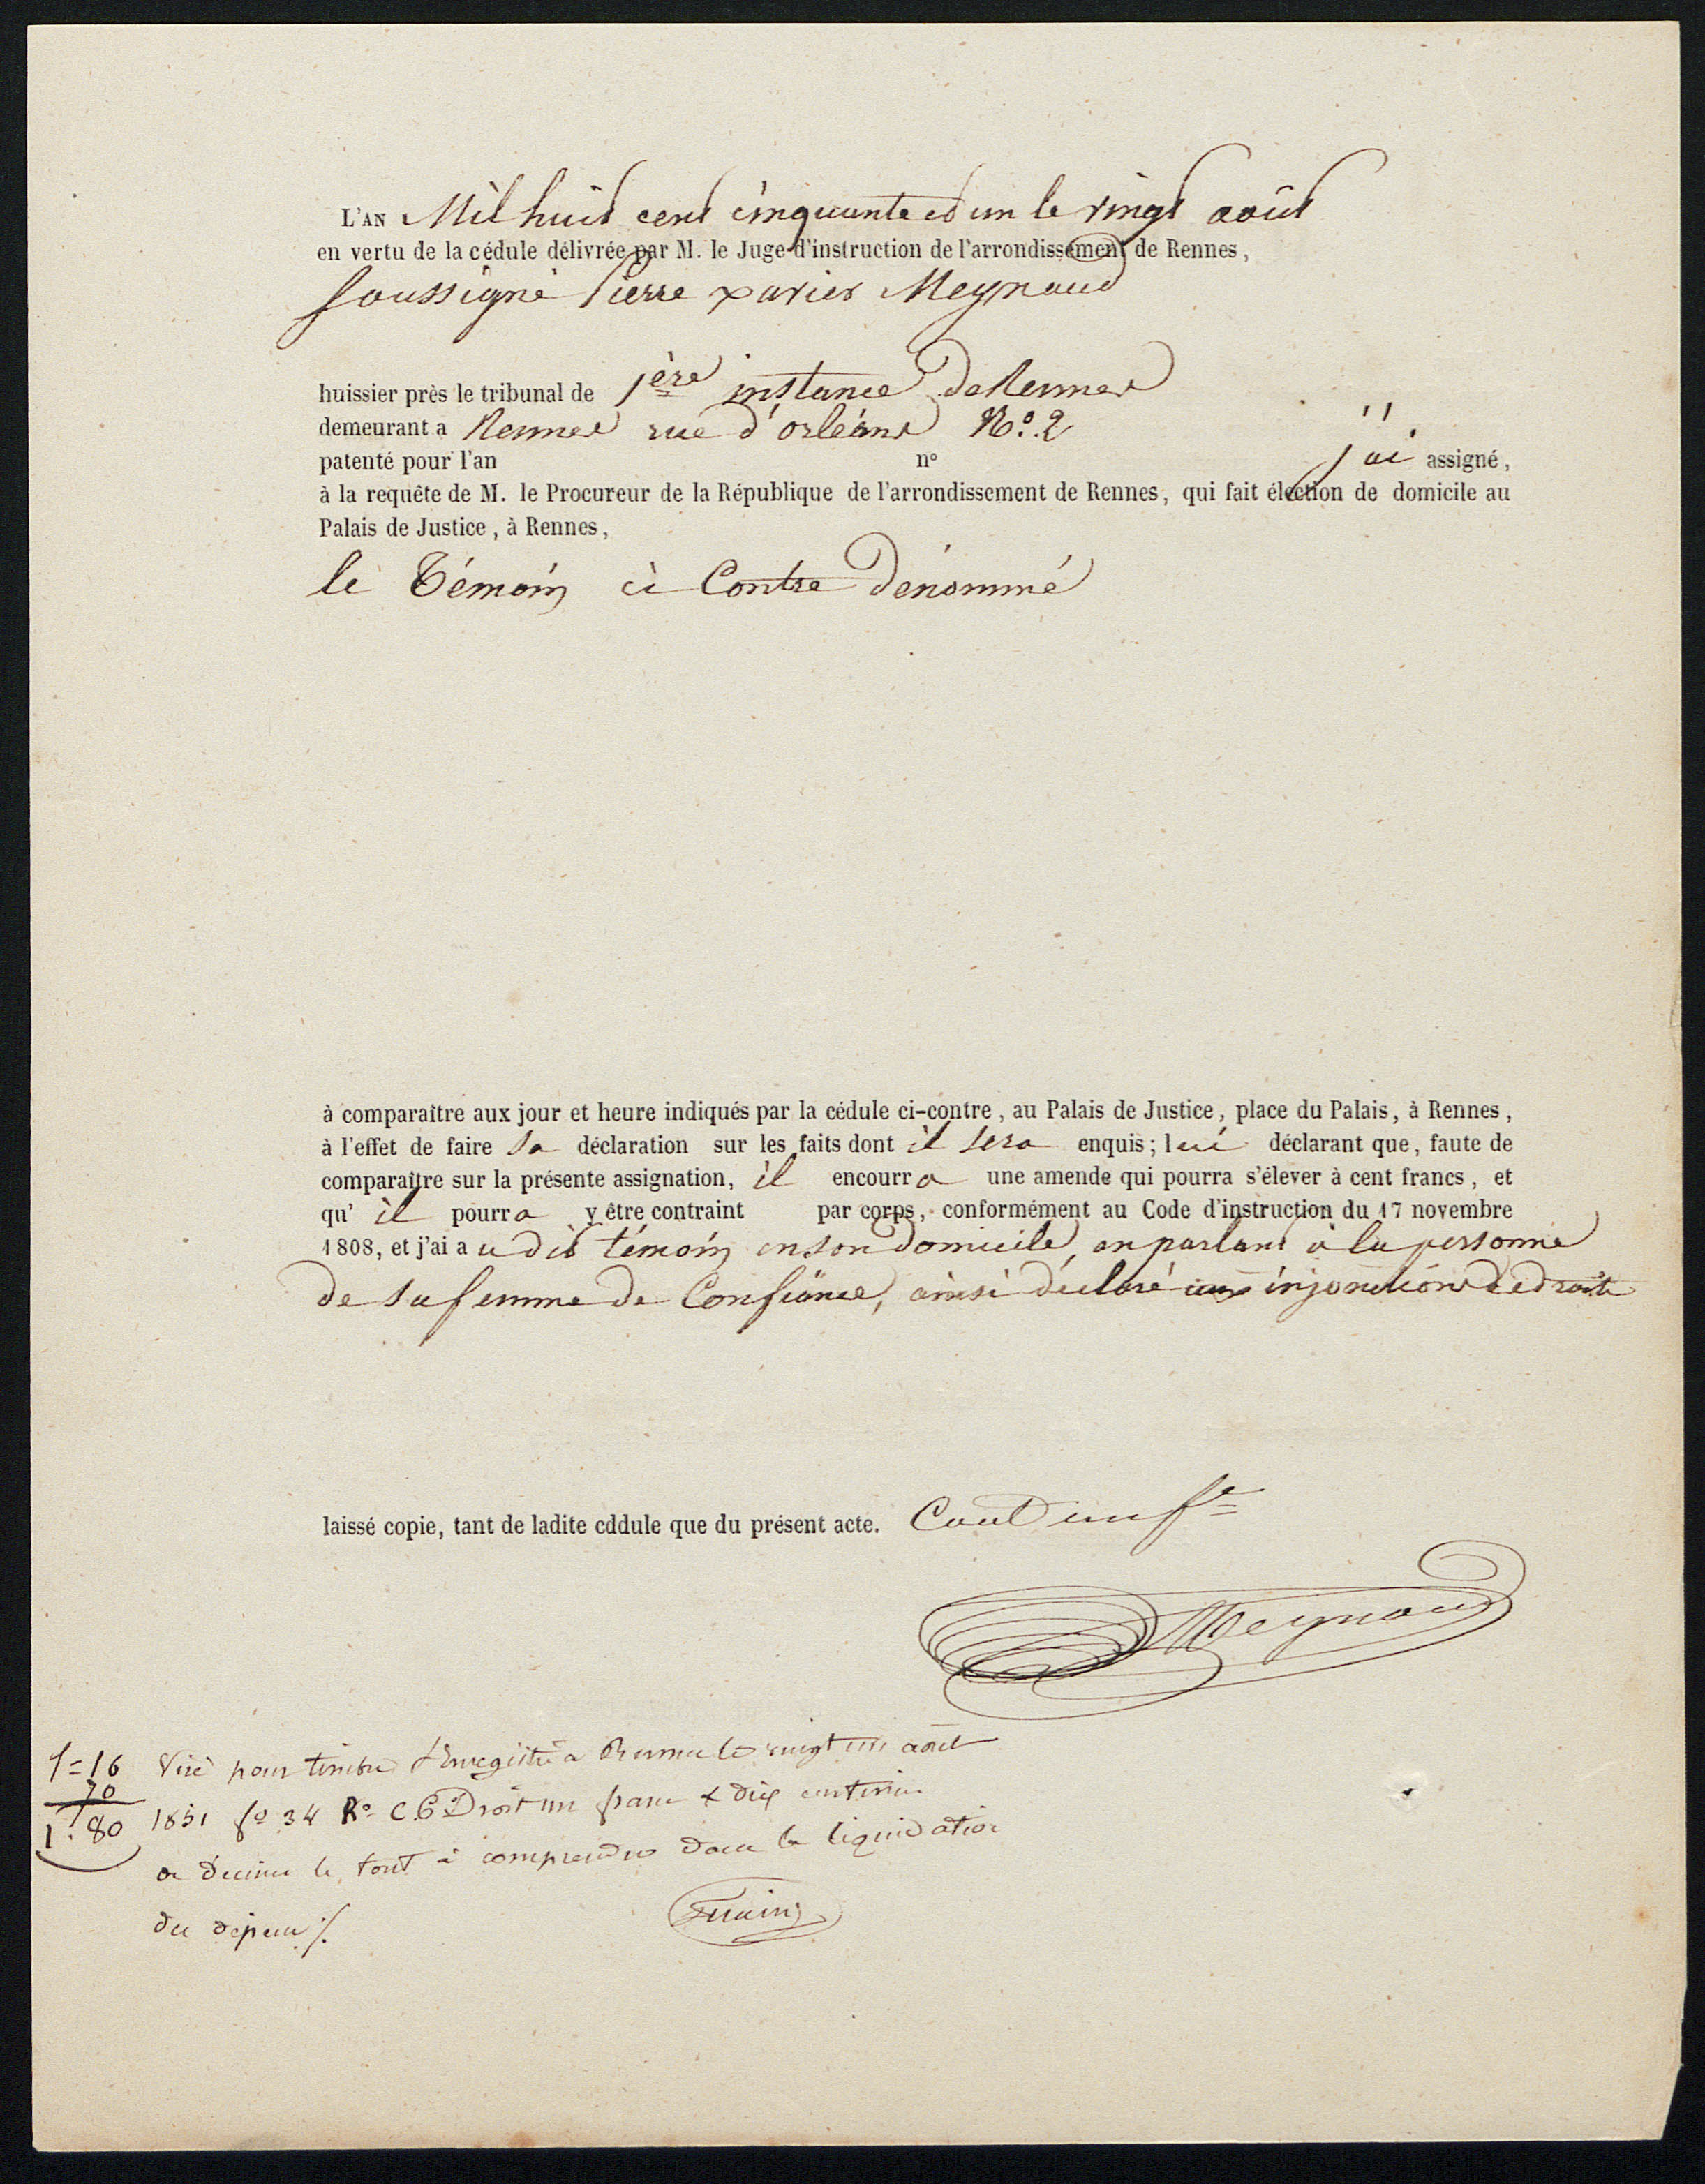 L'AN Mil huit cent cinquante et un le vingt août
en vertu de la cédule délivrée par M. le Juge d'instruction de l'arrondissement de Rennes,
soussigné Pierre xavier Meynaud
huissier près le tribunal de 1ère instance de Rennes
demeurant a Rennes rue d'orléans No. 2
patenté pour l'an nº j'ai assigné,
à la requête de M. le Procureur de la République de l'arrondissement de Rennes, qui fait élection de domicile au
Palais de Justice, à Rennes,
le Témoin ci Contre dénommé
à comparaître aux jour et heure indiqués par la cédule ci-contre, au Palais de Justice, place du Palais, à Rennes,
à l'effet de faire sa déclaration sur les faits dont il sera enquis; lui déclarant que, faute de
comparaître sur la présente assignation, il encourra une amende qui pourra s'élever à cent francs, et
qu' il pourra y être contraint par corps, conformément au Code d'instruction du 17 novembre
1808, et j'ai a u dit témoin en son domicile, en parlant à la personne
de sa femme de Confiance, ainsi déclaré aux injonctions de droit
laissé copie, tant de ladite cddule que du présent acte. Cout un fc
Meynaud
1=16 Visé pour timbre & Enregistré a Rennes le vingt un août
70
1.80 1851 fº 34 Rº C 6 Droit un franc & dix centimes
de decime le tout à comprendre dans la liquidation
des depens ./.